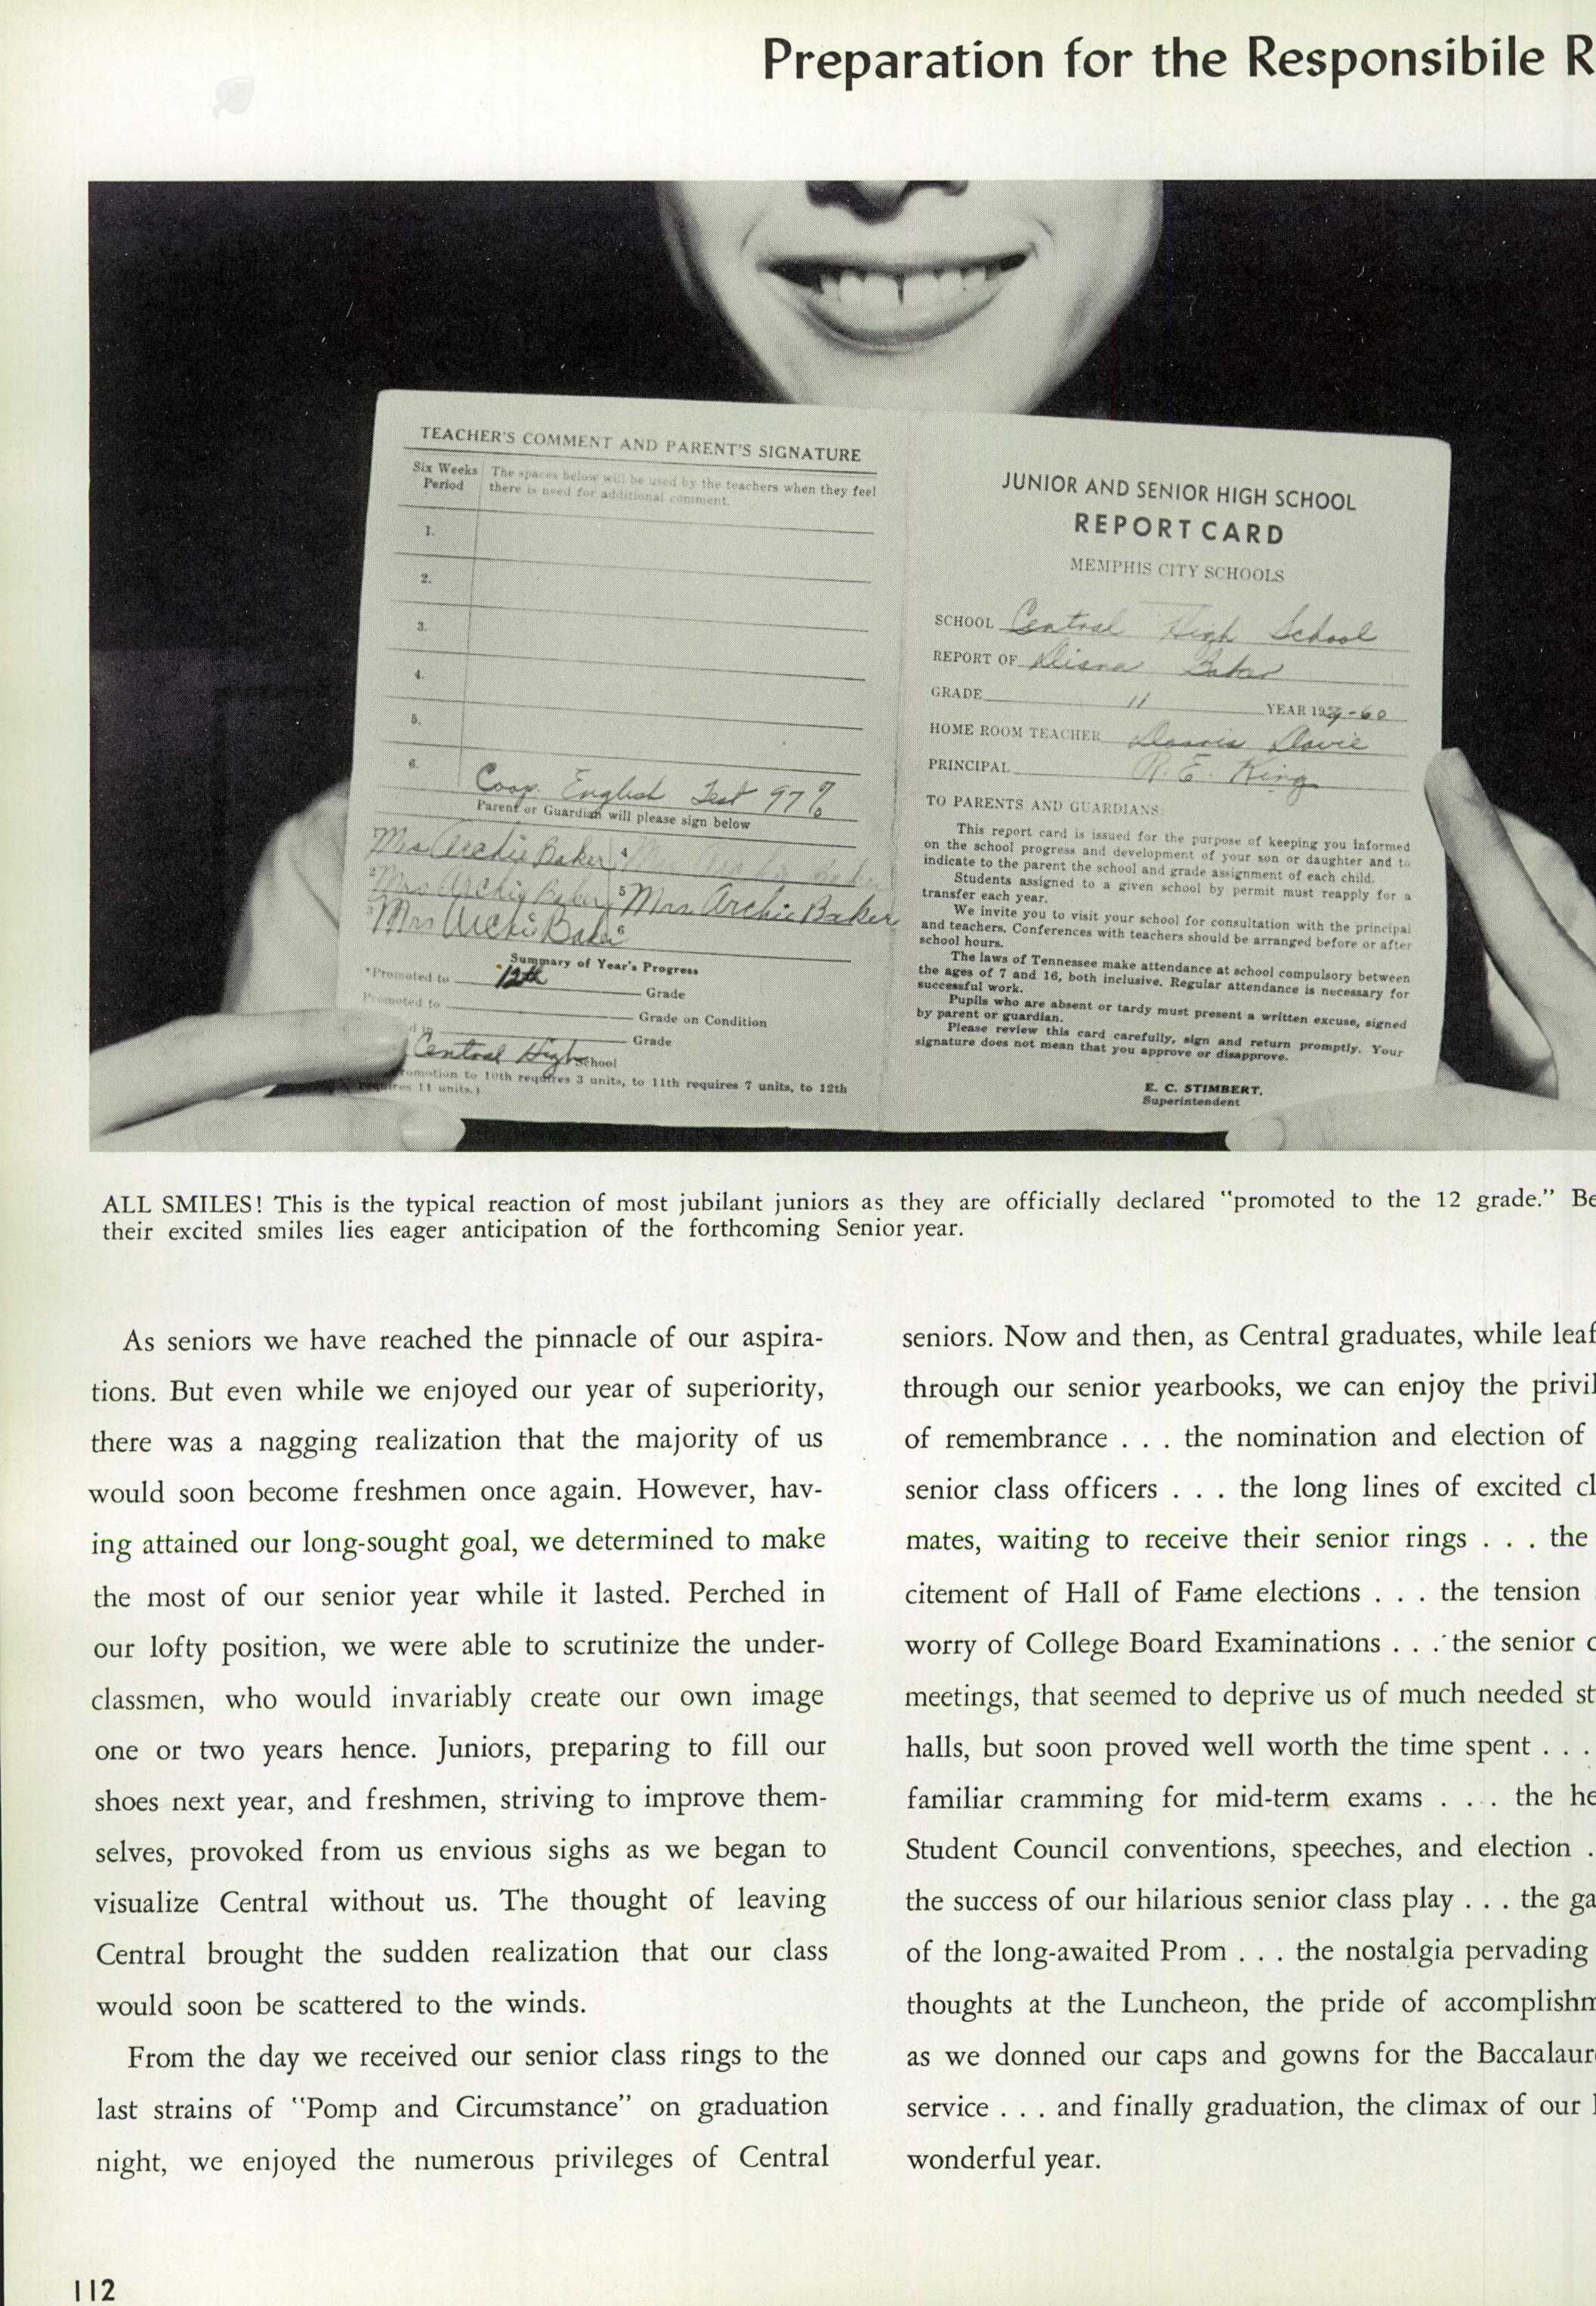 Preparation for the Responsibile R
TEACHER'S COMMENT AND PARENT'S SIGNATURE
Six Weeks Period
The spaces below will be used by the teachers when they feel
there is need for additional comment.
1.
2.
3.
4.
5.
6.
Coop. English Test 97%
Parent or Guardian will please sign below
Mrs Archie Baker 4
2 Mrs Archie Baker 5 Mrs. Archie Baker
3 Mrs Archie Baker 6
Summary of Year's Progress
*Promoted to 12th Grade
Promoted to Grade on Condition
Grade
Central High School
omotion to 10th requires 3 units, to 11th requires 7 units, to 12th
requires 11 units.)
JUNIOR AND SENIOR HIGH SCHOOL
REPORT CARD
MEMPHIS CITY SCHOOLS
SCHOOL Central High School
REPORT OF Diana Baker
GRADE 11 YEAR 1959-60
HOME ROOM TEACHER Davie
PRINCIPAL R. E. King
TO PARENTS AND GUARDIANS:
This report card is issued for the purpose of keeping you informed
on the school progress and development of your son or daughter and to
indicate to the parent the school and grade assignment of each child.
Students assigned to a given school by permit must reapply for a
transfer each year.
We invite you to visit your school for consultation with the principal
and teachers. Conferences with teachers should be arranged before or after
school hours.
The laws of Tennessee make attendance at school compulsory between
the ages of 7 and 16, both inclusive. Regular attendance is necessary for
successful work.
Pupils who are absent or tardy must present a written excuse, signed
by parent or guardian.
Please review this card carefully, sign and return promptly. Your
signature does not mean that you approve or disapprove.
E. C. STIMBERT,
Superintendent
ALL SMILES! This is the typical reaction of most jubilant juniors as they are officially declared "promoted to the 12 grade." Be
their excited smiles lies eager anticipation of the forthcoming Senior year.
As seniors we have reached the pinnacle of our aspira-
tions. But even while we enjoyed our year of superiority,
there was a nagging realization that the majority of us
would soon become freshmen once again. However, hav-
ing attained our long-sought goal, we determined to make
the most of our senior year while it lasted. Perched in
our lofty position, we were able to scrutinize the under-
classmen, who would invariably create our own image
one or two years hence. Juniors, preparing to fill our
shoes next year, and freshmen, striving to improve them-
selves, provoked from us envious sighs as we began to
visualize Central without us. The thought of leaving
Central brought the sudden realization that our class
would soon be scattered to the winds.
From the day we received our senior class rings to the
last strains of "Pomp and Circumstance" on graduation
night, we enjoyed the numerous privileges of Central
seniors. Now and then, as Central graduates, while leaf
through our senior yearbooks, we can enjoy the privil
of remembrance . . . the nomination and election of
senior class officers . . . the long lines of excited cl
mates, waiting to receive their senior rings . . . the
citement of Hall of Fame elections . . . the tension
worry of College Board Examinations . . . the senior c
meetings, that seemed to deprive us of much needed st
halls, but soon proved well worth the time spent . . .
familiar cramming for mid-term exams . . . the he
Student Council conventions, speeches, and election .
the success of our hilarious senior class play . . . the ga
of the long-awaited Prom . . . the nostalgia pervading
thoughts at the Luncheon, the pride of accomplishm
as we donned our caps and gowns for the Baccalaur
service . . . and finally graduation, the climax of our l
wonderful year.
112